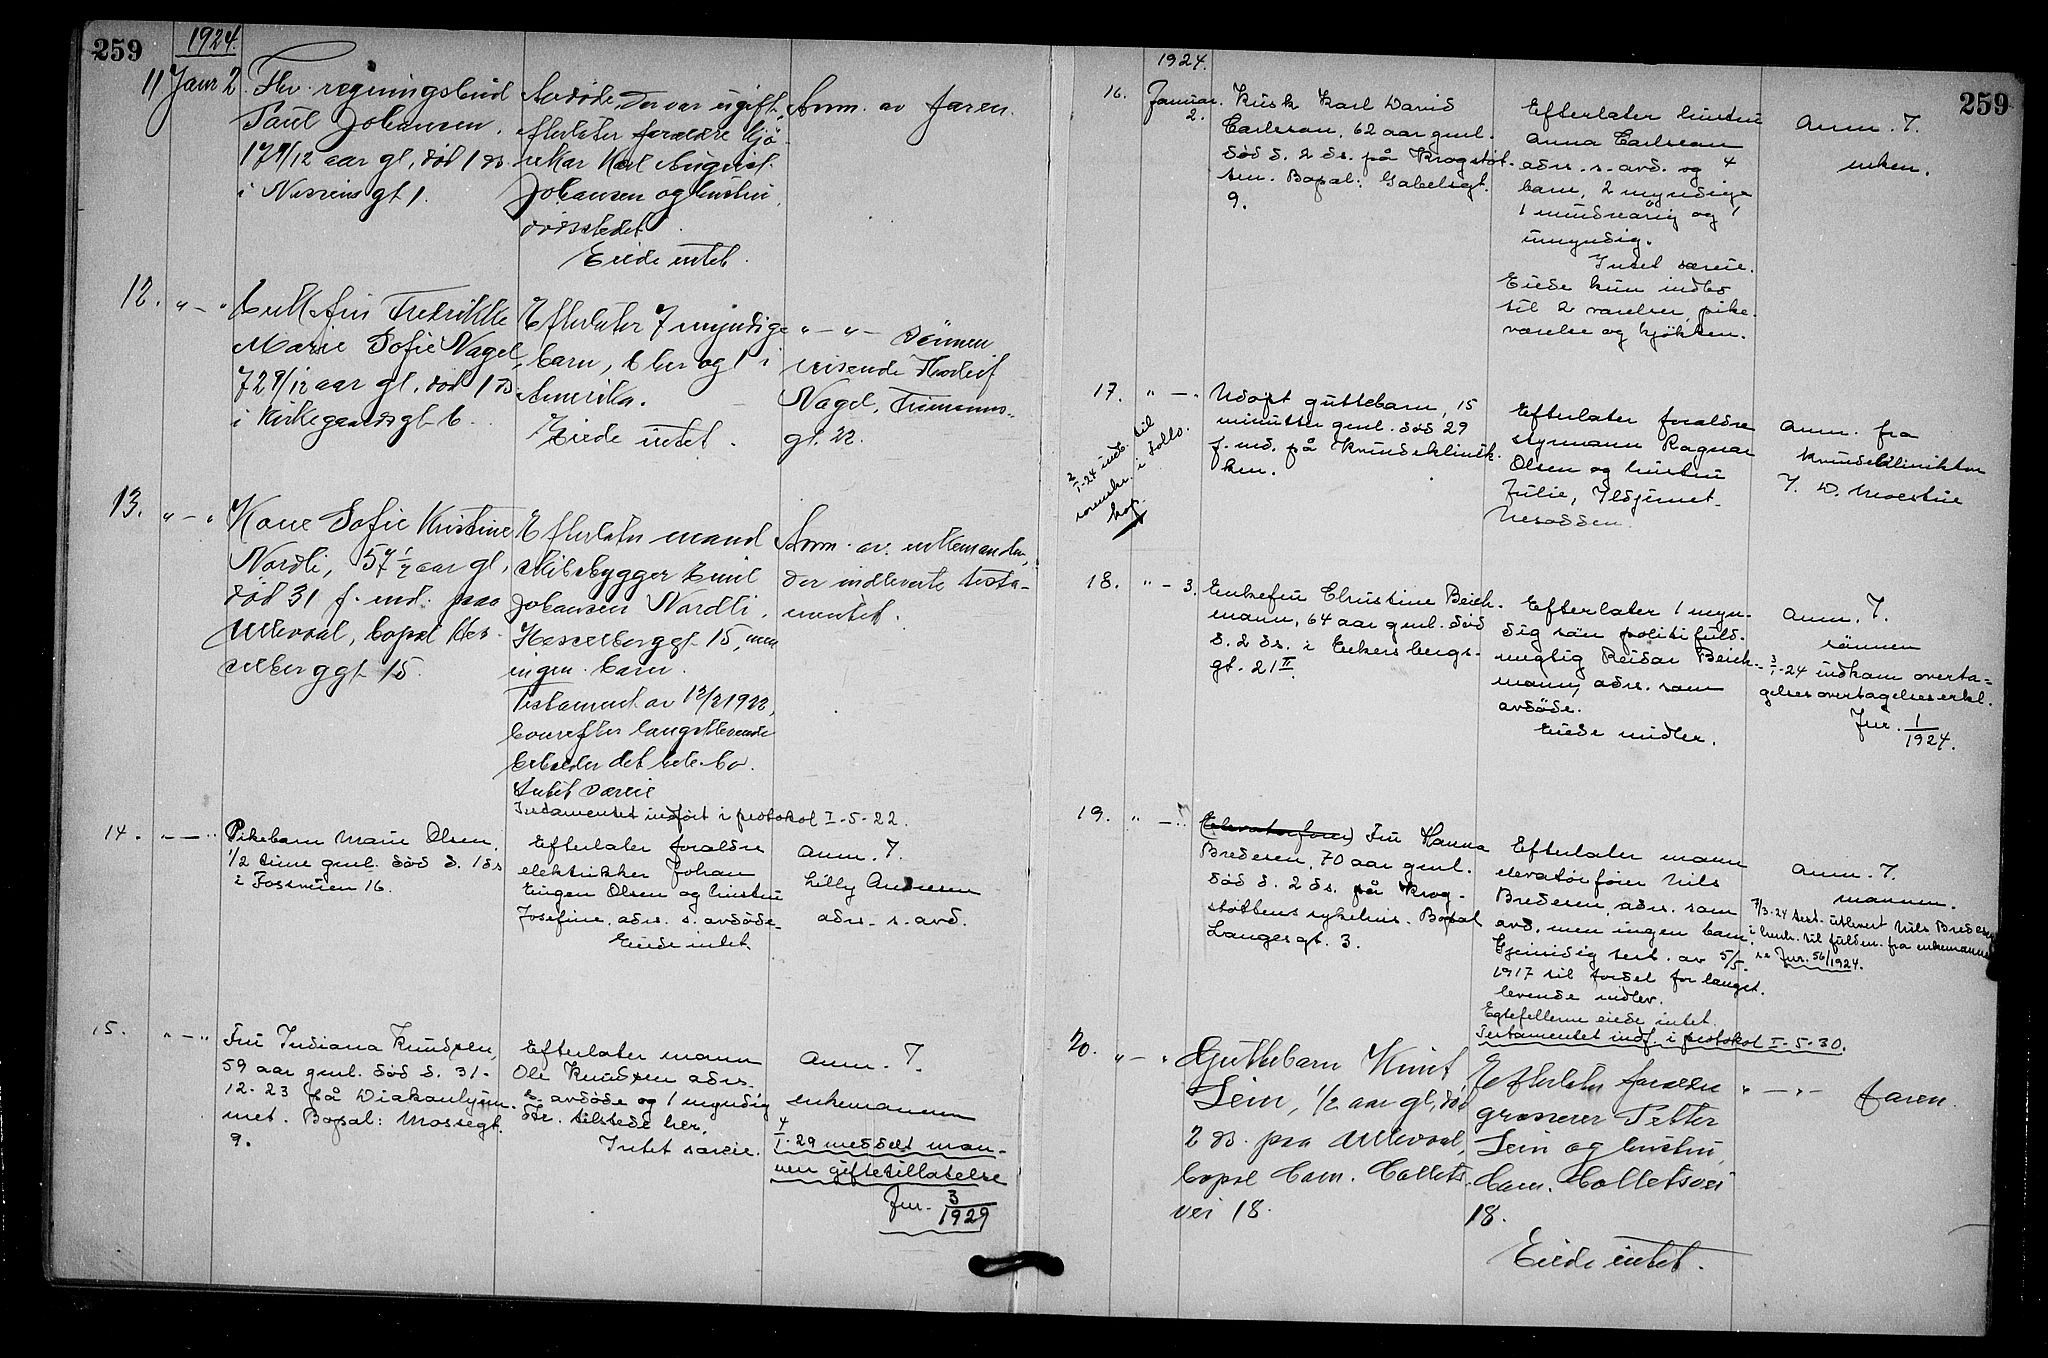 259
1924.
11 Janr 2. Fhv. regningsbud
Paul Johansen,
17 9/12 aar gl, død 1 ds
i Nissensgt 1.
Avdøde, der var ugift,
efterlater forældre kjø-
rekar Karl August
Johansen og hustru,
dødsstedet.
Eiede intet.
Anm. av faren.
12. " — " Enkefru Fredrikke
Marie Sofie Nagel,
72 9/12 aar gl, død 1 ds
i Kirkegaardsgt 6.
Efterlater 7 myndige
barn, 6 her og 1 i
Amerika.
Eiede intet.
" — " — Sønnen
reisende
Nagel,
gt. 22.
13. " — " Kone Sofie Kristine
Nordli, 57 1/2 aar gl,
død 31 f. md. paa
Ullevaal, bopæl Hes-
selberggt 15.
Efterlater mand
skibsbygger Emil
Johansen Nordli,
Hesselberggt 15, men
ingen barn.
Testament av 12/2 1922,
hvorefter længstlevende
beholder det hele bo.
Intet særeie
Testamentet indført i protokol I-5-22.
Anm. av enkemanden,
der indleverte testa-
mentet.
14. " — " Pikebarn Marie Olsen,
1/2 time gml. død d. 1 ds
i Fossveien 16.
Efterlater foraldre
elektrikker Johan
Eugen Olsen og hustru
Josefine, adrs. s. avdøde.
Eiede intet.
Anm. T.
Lilly Andresen
adrs. s. avd.
15. " — " Fru Indiana Knudsen,
59 aar gml. død d. 31-
12-23 på Diakonhjem-
met. Bopal: Mossegt.
9.
Efterlater mann
Ole Knudsen adrs.
s. avdøde og 1 myndig
dtr. tilstede her.
Intet sareie.
Anm. T.
enkemannen
4/I-29 meddelt man-
nen giftetillatelse
Jnr. 3/1929
259
1924.
16. Januar 2. Kusk Karl David
Carlsson, 62 aar gml.
død d. 2 ds. på Krogstøt-
ten. Bopal: Gabelsgt.
9.
Efterlater hustru
Anna Carlsson
adrs. s. avd. og 4
barn, 2 myndige
1 mindreårig og 1
umyndig.
Intet sareie.
Eiede kun indbo
til 2 varelser, pike-
varelse og kjøkken.
Anm. T.
enken.
17. " — " Udøpt guttebarn, 15
minutter gml. død 29
f. md. på Kvindeklinik-
ken.
2/I-24 indb. til
sorenskr. i Follo.
Efterlater foraldre
styrmann Ragnar
Olsen og hustru
Julie, Ildjernet
Nesodden.
Anm. fra
Kvindeklinikken
18. " — 3. Enkefru Christine Beich-
mann, 64 aar gml. død
d. 2 ds. i Eckersbergs-
gt. 21 II.
Efterlater 1 myn-
dig søn politifuld-
megtig Reidar Beich-
mann, adrs. som
avdøde.
Eiede midler.
Anm. T.
sønnen
3/I-24 indkom overta-
gelses overtagelseserkl.
Jnr. 1/1924.
19. " — " (Elevatorfører) Fru Hanna
Bredesen, 70 aar gml.
død d. 2 ds. på Krog-
støttens sykehus. Bopal
Langesgt. 3.
Efterlater mann
elevatorfører Nils
Bredesen, adrs. som
avd. men ingen barn.
Gjensidig test. av 5/5-
1917 til fordel for langst-
levende indlev.
Egtefellerne eiede intet.
Testamentet indf. i protokol I-5-30.
Anm. T.
mannen.
7/3-24 test. utlevert Nils Bredesen
i henh. til fuldm. fra enkemannen
se Jnr. 56/1924.
20. " — " Guttebarn Knut
Lein, 1/2 aar gl, død
2 ds. paa Ullevaal,
bopæl Cam. Colletts
vei 18.
Efterlater forældre
grosserer Petter
Lein og hustru,
Cam. Collettsvei
18.
Eiede intet.
" — " — faren.